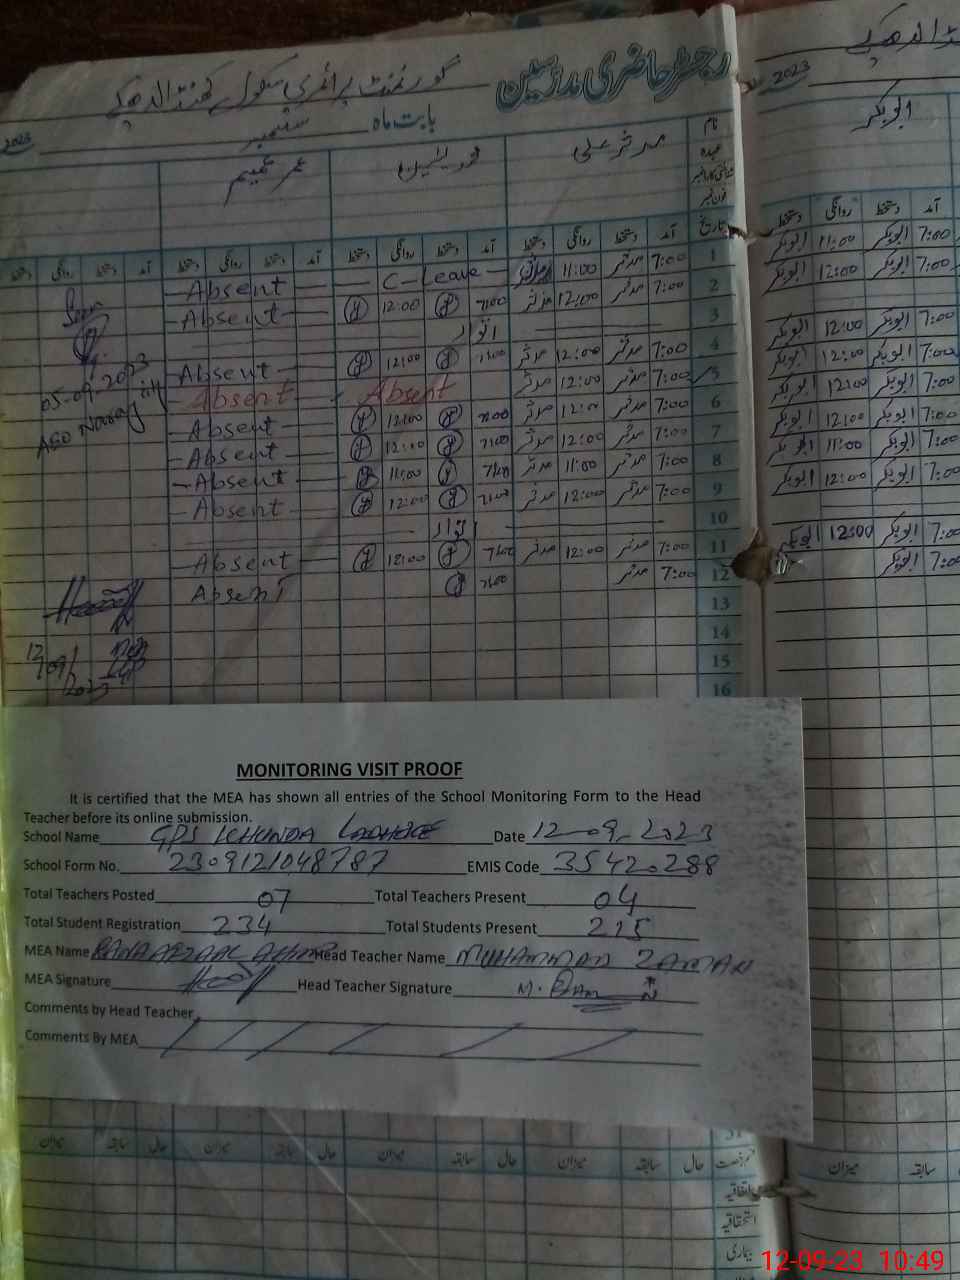 رجسٹر حاضری مدرسین گورنمنٹ پرائمری سکول کھنڈا لدھیکے
بابت ماہ ستمبر 2023
2023
نام
عہدہ
شناختی کارڈ نمبر
فون نمبر
ابوبکر
مدثر علی
نور یٰسین
عمر
تاریخ آمد دستخط روانگی دستخط آمد دستخط روانگی دستخط آمد دستخط روانگی دستخط دستخط روانگی دستخط آمد
آمد دستخط روانگی دستخط
1 7:00 مدثر 11:00 مدثر C-Leave Absent
7:00 ابوبکر 11:00 ابوبکر
2 7:00 مدثر 12:00 مدثر 7:00 12:00 Absent
12:00 ابوبکر
3 اتوار
4 7:00 مدثر 12:00 مدثر 7:00 12:00 Absent
7:00 ابوبکر 12:00 ابوبکر
5 7:00 مدثر 12:00 مدثر Absent Absent
7:00 ابوبکر 12:00 ابوبکر
6 7:00 مدثر 12:00 مدثر 7:00 12:00 Absent
7:00 ابوبکر 12:00 ابوبکر
7 7:00 مدثر 12:00 مدثر 7:00 12:00 Absent
7:00 ابوبکر 12:00 ابوبکر
8 7:00 مدثر 11:00 مدثر 7:00 11:00 Absent
7:00 ابوبکر 11:00 ابوبکر
9 7:00 مدثر 12:00 مدثر 7:00 12:00 Absent
7:00 ابوبکر 12:00 ابوبکر
10 اتوار
11 7:00 مدثر 12:00 مدثر 7:00 12:00 Absent
7:00 ابوبکر 12:00 ابوبکر
12 7:00 مدثر 7:00 Absent
7:00 ابوبکر
13
14
15
16
05-09-2023
AEO
12/09/2023
MONITORING VISIT PROOF
It is certified that the MEA has shown all entries of the School Monitoring Form to the Head
Teacher before its online submission.
School Name GPS KHUNDA LADHEKE Date 12-09-2023
School Form No. 2309121048787 EMIS Code 35420288
Total Teachers Posted 07 Total Teachers Present 04
Total Student Registration 234 Total Students Present 215
MEA Name RANA AFZAAL AHMAD Head Teacher Name MUHAMMAD ZAMAN
MEA Signature Head Teacher Signature M. Zaman
Comments by Head Teacher
Comments By MEA
31
قسم رخصت حال سابقہ میزان حال سابقہ میزان حال سابقہ میزان حال سابقہ میزان
سابقہ میزان
اتفاقیہ
استحقاقیہ
بیماری
12-09-23 10:49